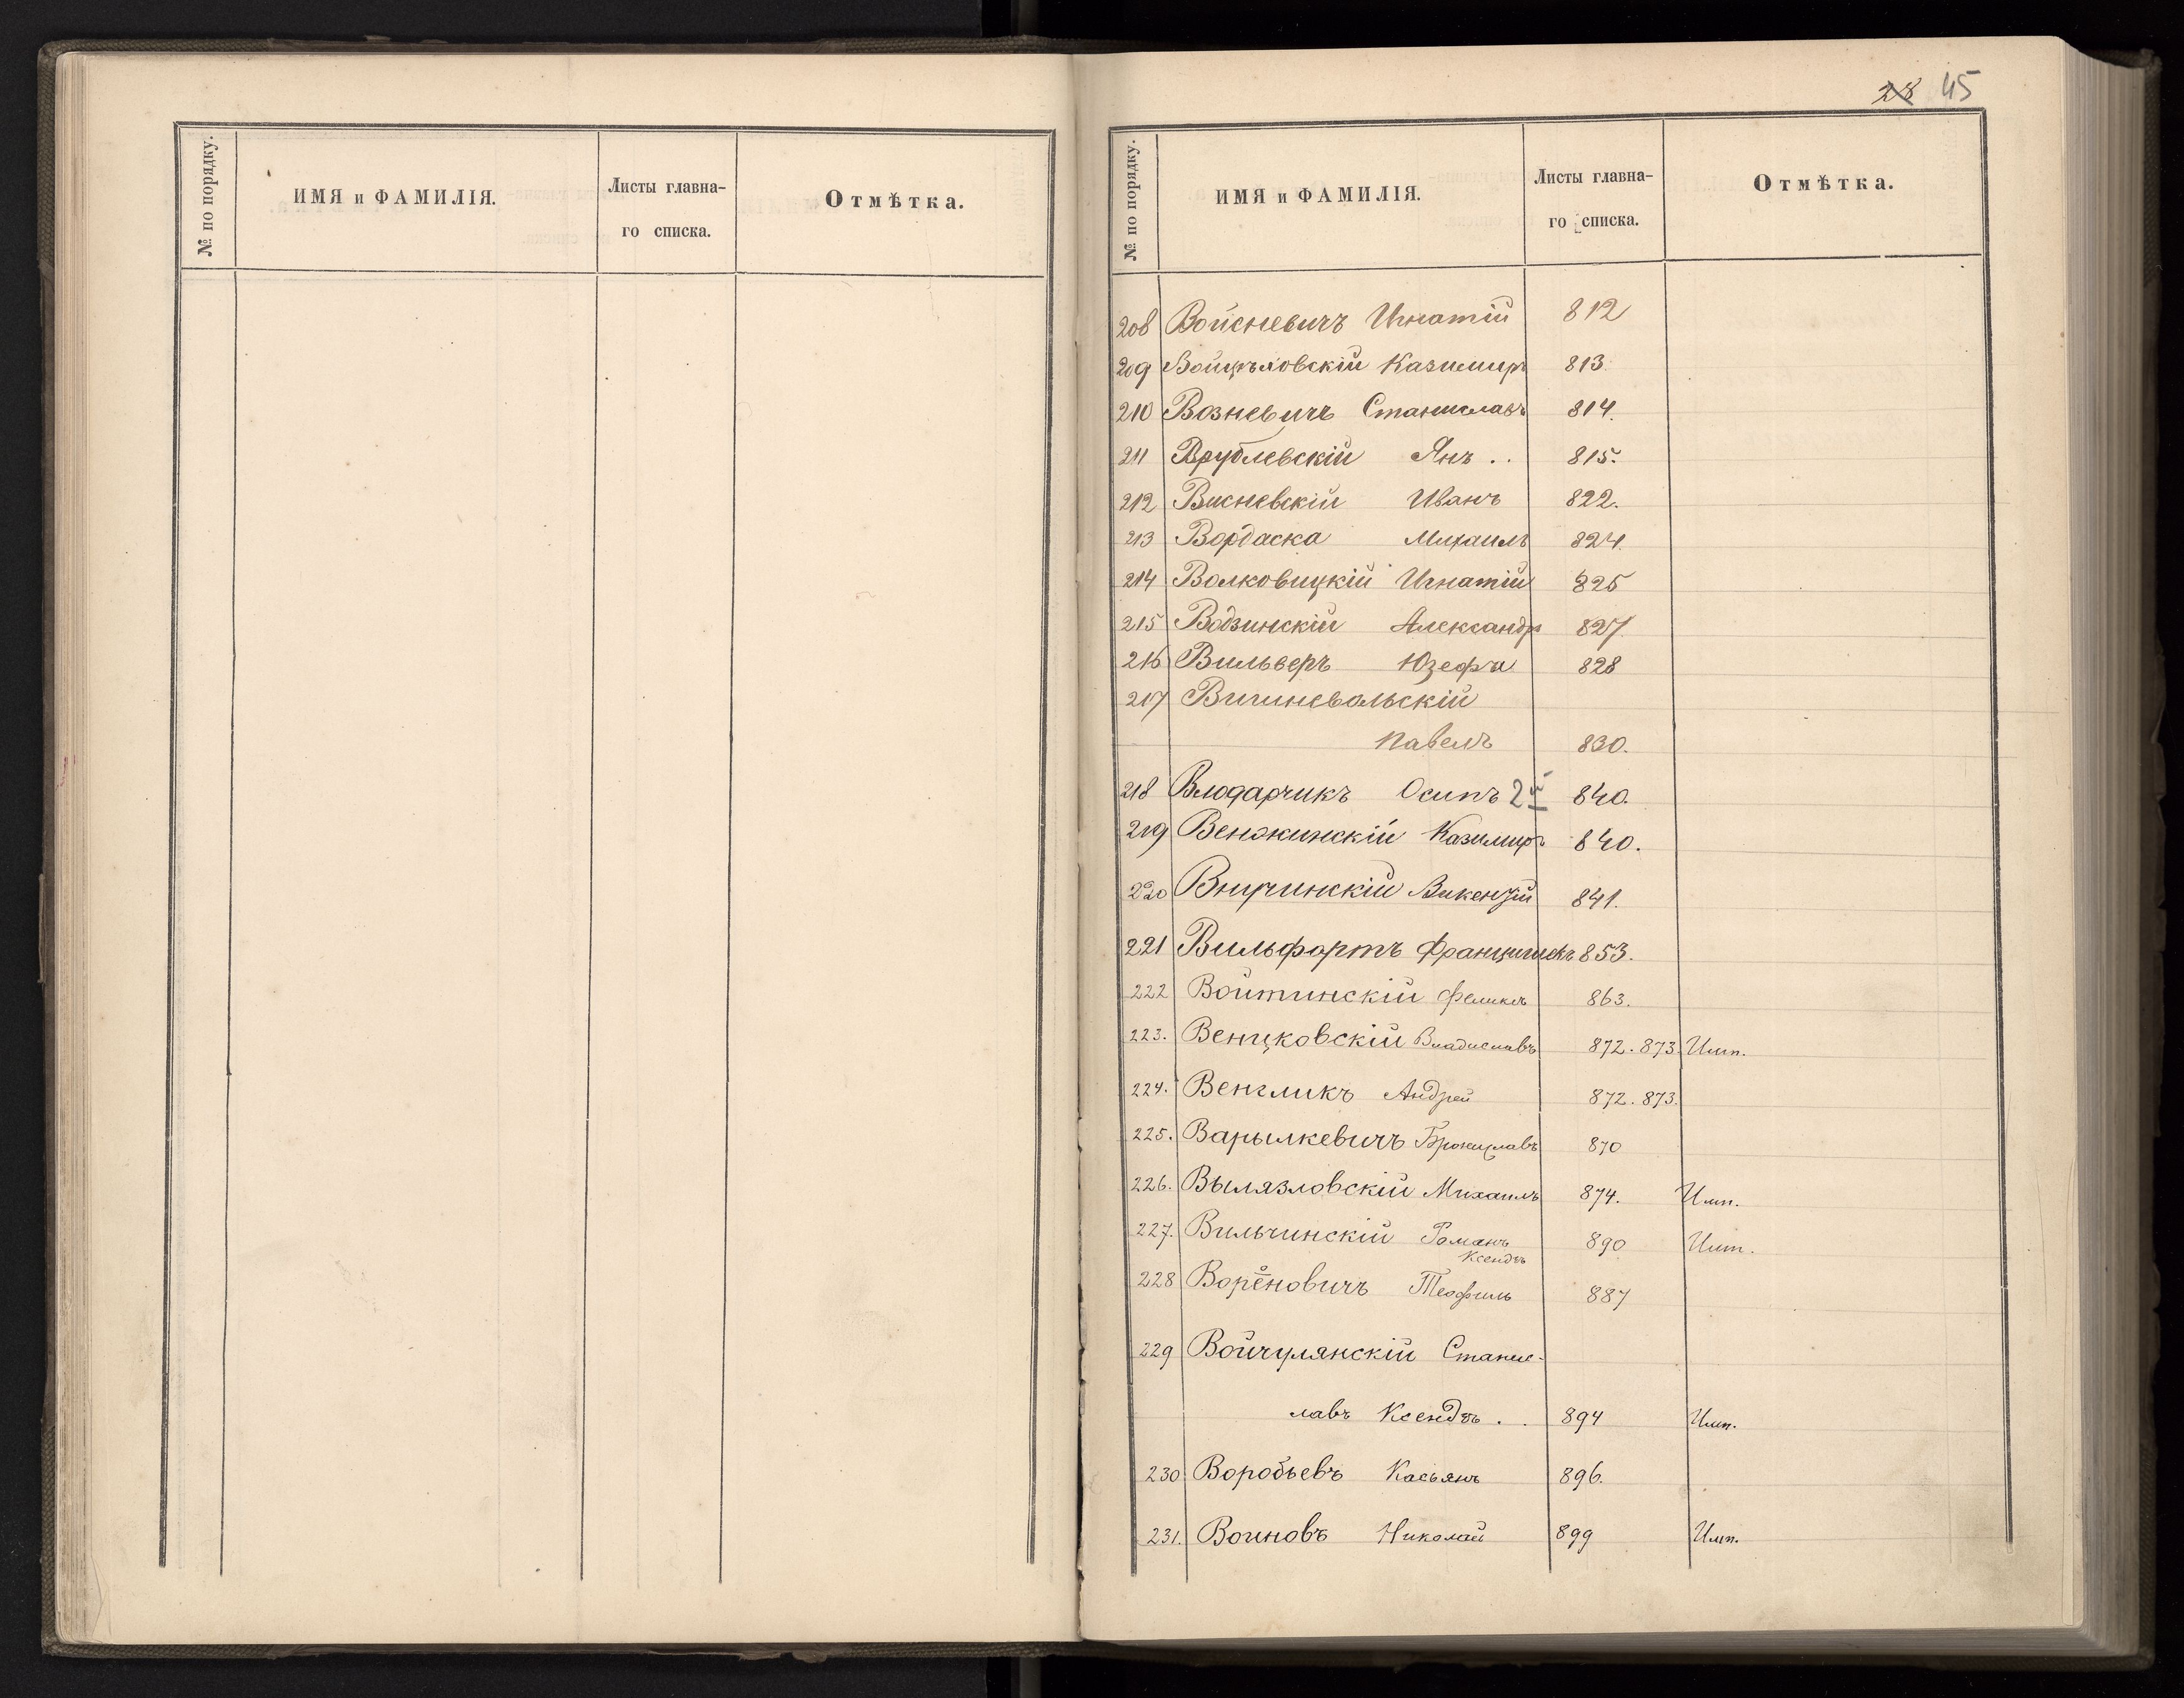 28 45
№ по порядку. ИМЯ и ФАМИЛІЯ. Листы главна- Отмѣтка.
го списка.
№ по порядку. ИМЯ и ФАМИЛІЯ. Листы главна- Отмѣтка.
го списка.
208 Войсневичъ Игнатій 812
209 Казимиръ 813
210 Возневичъ Станиславъ 814.
211 Врублевскій Янъ .. 815.
212 Висневскій Иванъ 822.
213 Вордаска Михаилъ 824.
214 Волковицкій Игнатій 825
215 Водзинскій Александръ 827
216 Вильверъ Юзефъ 828
217 Вишневольскій
Павелъ 830.
218 Влодарчикъ Осипъ 2й 840.
219 Венжинскій Казимиръ 840.
220 Викентій 841.
221 Вильфортъ Францишекъ 853.
222 Войтинскій Феликсъ 863.
223. Венцковскій Владиславъ 872. 873. Имп.
224. Венгликъ Андрей 872. 873.
225. Варылкевичъ Брониславъ 870
226. Вылязловскій Михаилъ 874. Имп.
227. Вильчинскій Романъ 890 Имп.
Ксендзъ
228 Вореновичъ Теофиль 887
229 Войчулянскій Станис-
лавъ Ксендзъ . . 894 Имп.
230 Воробьевъ Касьянъ 896.
231. Воиновъ Николай 899 Имп.